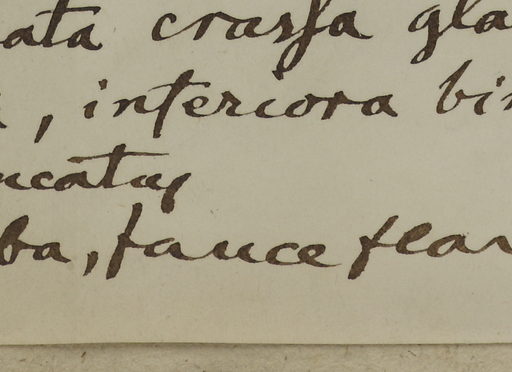 ata crassa gla
, interiora bi
ucatus
ba, fauce flav